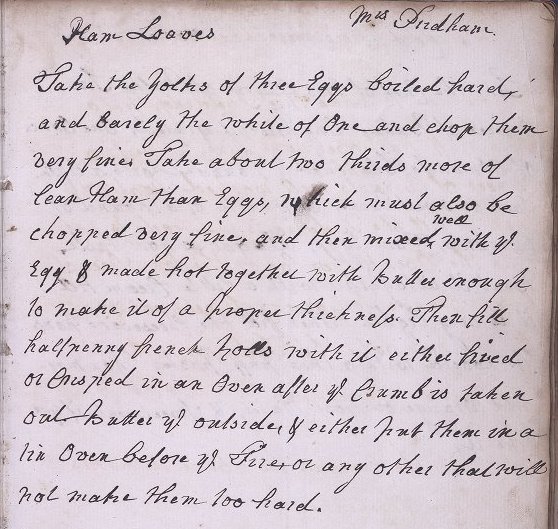 Ham Loaves
Mrs Pudham
Take the Yolks of three Eggs boiled hard,
and barely the white of One and chop them
very fine. Take about two thirds more of
lean Ham than Eggs, which must also be
chopped very fine, and then mixed well with ye
Egg & made hot together with Butter enough
to make it of a proper thickness. Then fill
halfpenny french Rolls with it either fried
or Crisped in an Oven after ye Crumb is taken
out. Butter ye outside, & either put them in a
tin Oven before ye Fire, or any other that will
not make them too hard.